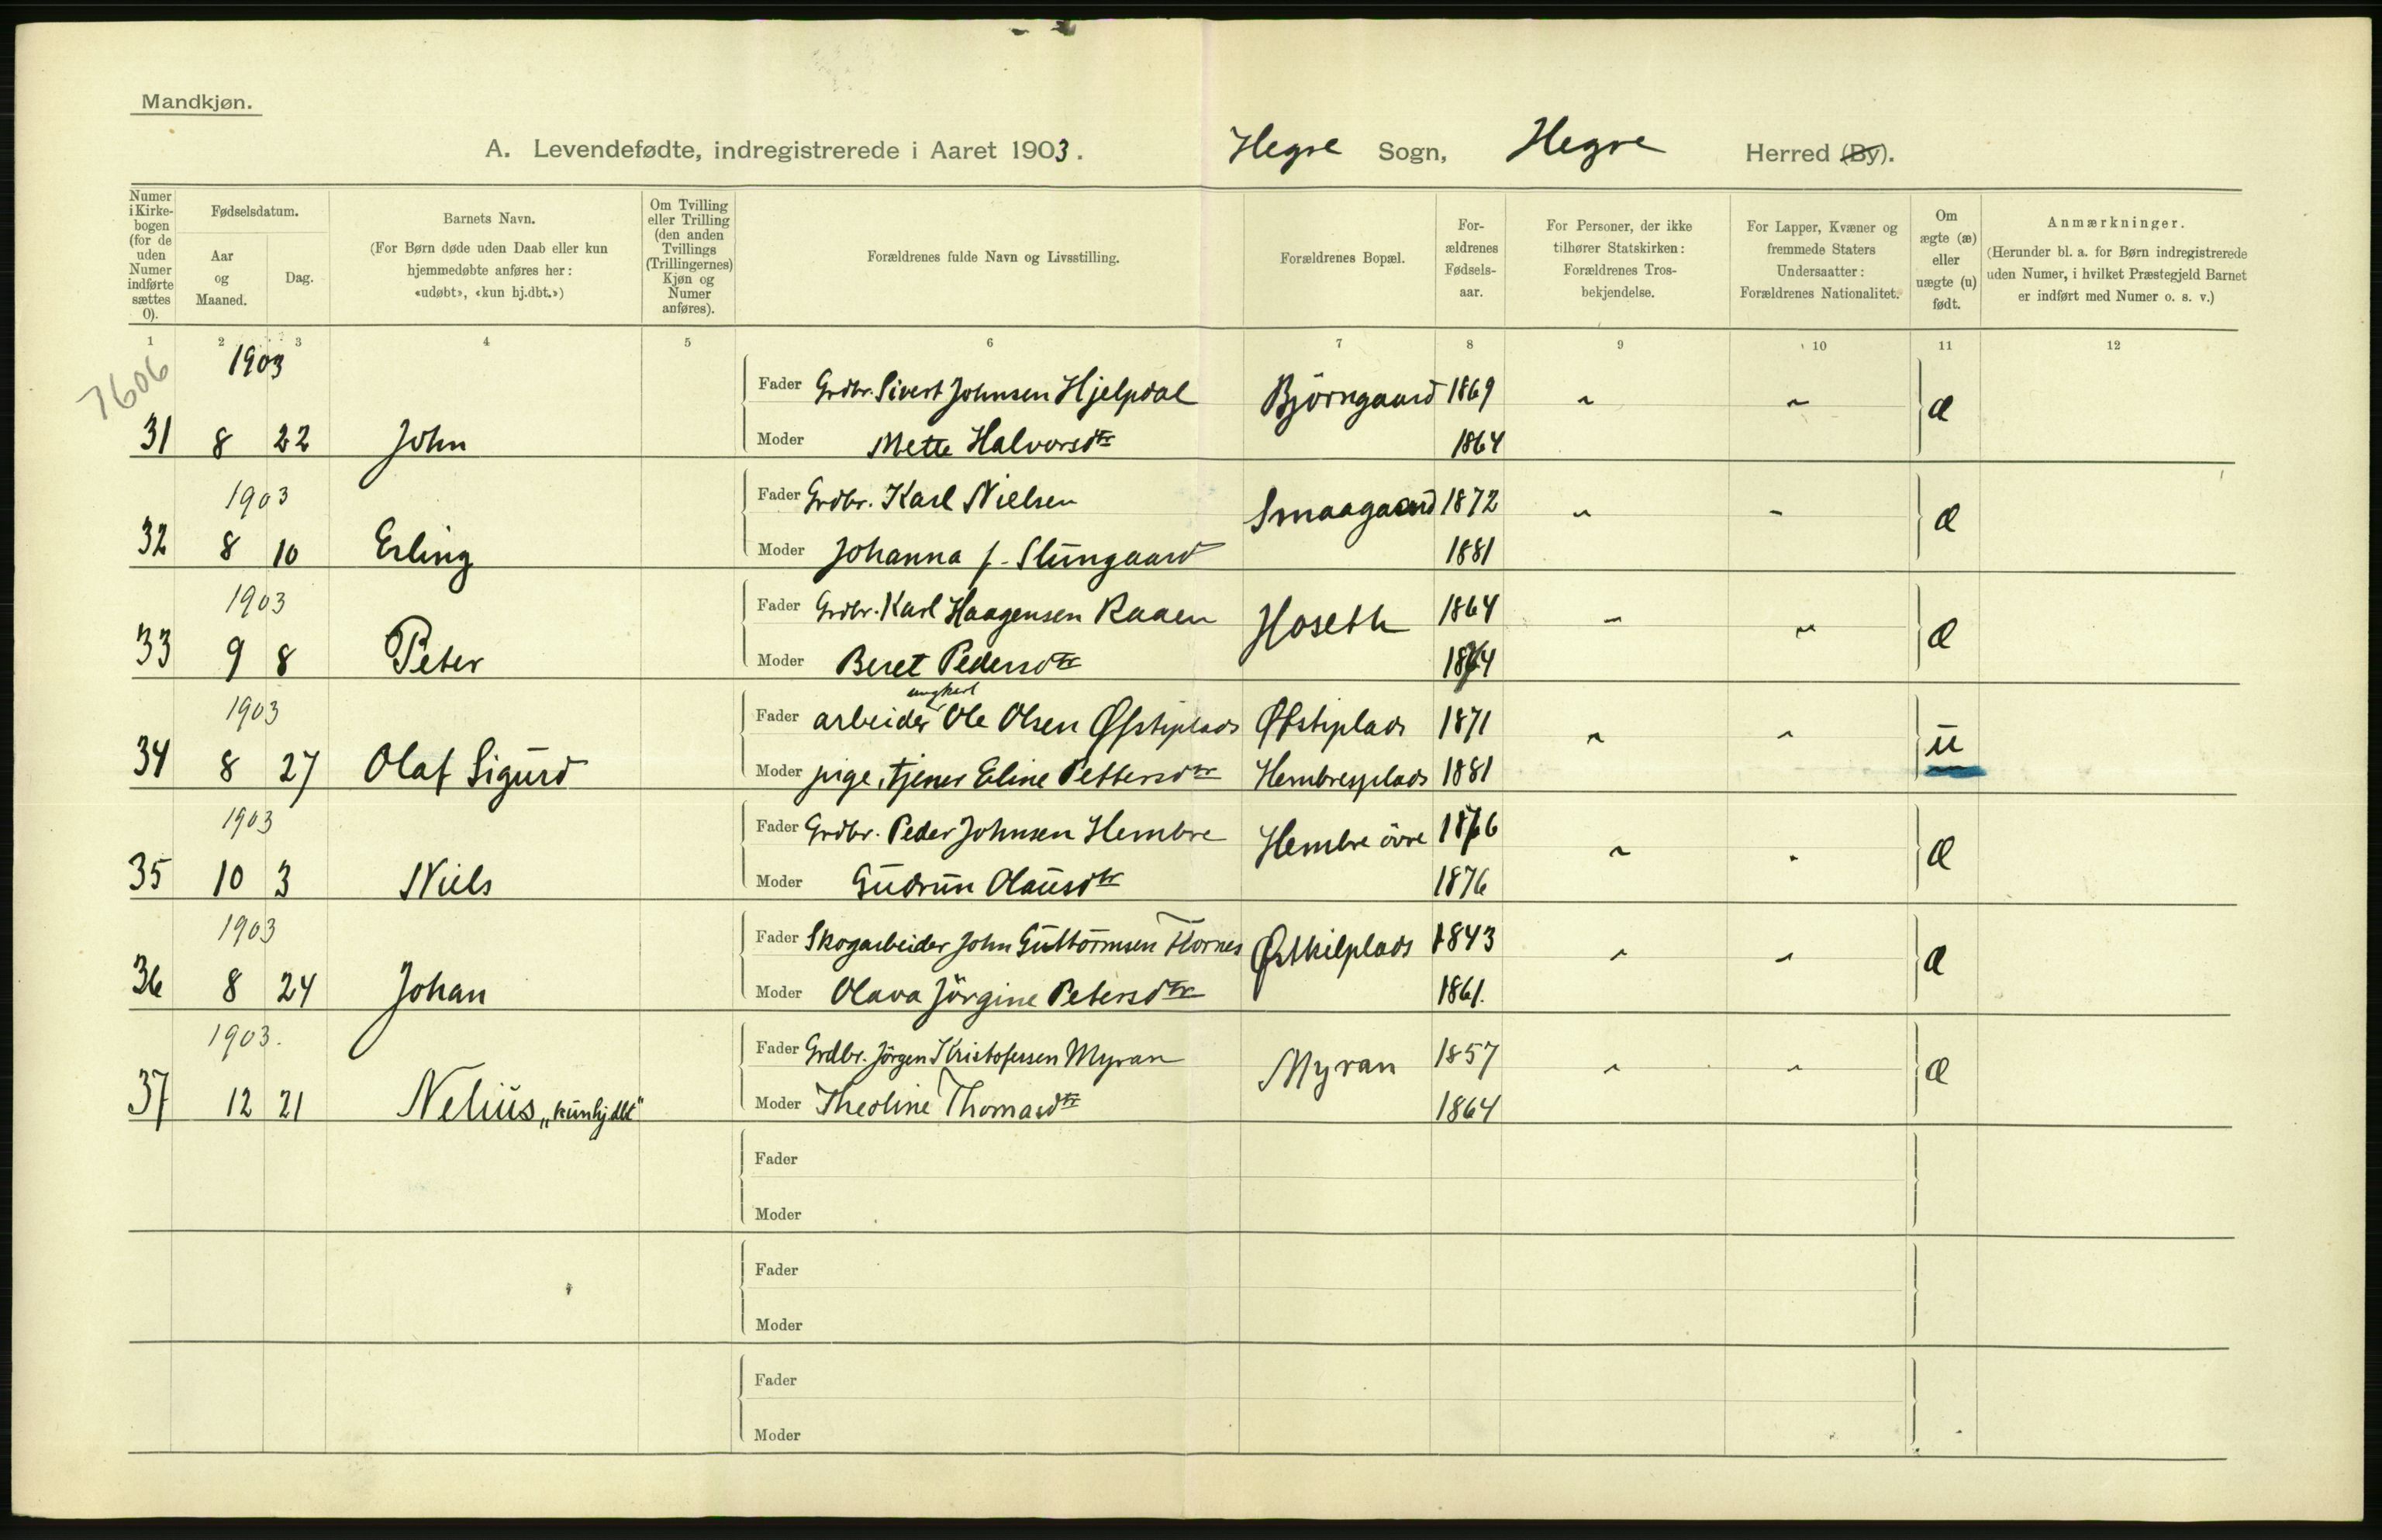 Mandkjøn.
A. Levendefødte, indregistrerede i Aaret 1903. Hegre Sogn, Hegre Herred (By).
Numer i Kirke-bogen (for de uden Numer indførte sættes 0).
Fødselsdatum.
Aar og Maaned.
Dag.
Barnets Navn.
(For Børn døde uden Daab eller kun hjemmedøbte anføres her: «udøbt», «kun hj.dbt.»)
Om Tvilling eller Trilling (den anden Tvillings (Trillingernes) Kjøn og Numer anføres).
Forældrenes fulde Navn og Livsstilling.
Forældrenes Bopæl.
For-ældrenes Fødsels-aar.
For Personer, der ikke tilhører Statskirken: Forældrenes Tros-bekjendelse.
For Lapper, Kvæner og fremmede Staters Undersaatter: Forældrenes Nationalitet.
Om ægte (æ) eller uægte (u) født.
Anmærkninger.
(Herunder bl. a. for Børn indregistrerede uden Numer, i hvilket Præstegjeld Barnet er indført med Numer o. s. v.)
1 2 3 4 5 6 7 8 9 10 11 12
7606
1903
Fader Grdbr. Sivert Johnsen Hjelpdal Björngaard 1869 " " æ
31 8 22 John Moder Mette Halvorsdtr 1864
1903
Fader Grdbr. Karl Nielsen Smaagaard 1872 " - æ
32 8 10 Erling Moder Johanna f. Stüngaard 1881
1903
Fader Grdbr. Karl Haagensen Raaen Hoseth 1864 - " æ
33 9 8 Peter Moder Beret Pedersdtr 1864
1903
ungkarl
Fader arbeider Ole Olsen Øfstiplads Øfstiplads 1871 " " ü
34 8 27 Olaf Sigürd Moder pige, tjener Eline Pettersdtr Hembresplads 1881
1903
Fader Grdbr. Peder Johnsen Hembre Hembre övre 1876 " " æ
35 10 3 Niels Moder Güdrün Olaüsdtr 1876
1903
Fader Skogarbeider John Güttormsen Flornes Østkilplads 1843 " " æ
36 8 24 Johan Moder Olava Jörgine Petersdtr 1861.
1903.
Fader Grdbr. Jörgen Kristofersen Myran Myran 1857 " " æ
37 12 21 Neliüs „kün hj dbt" Moder Theoline Thomasdtr 1864
Fader
Moder
Fader
Moder
Fader
Moder